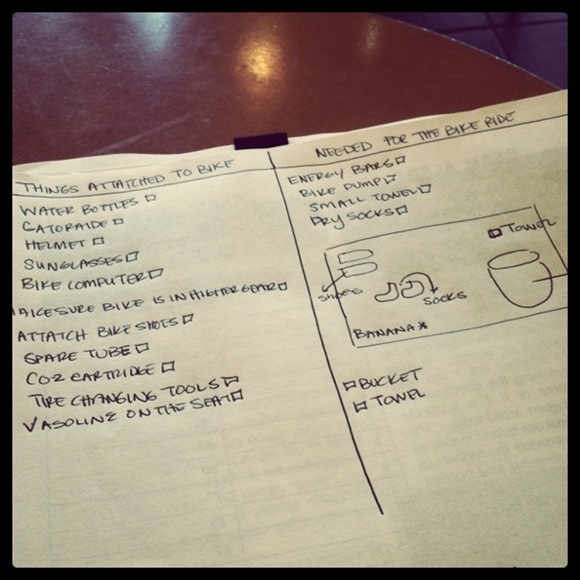 THINGS ATTATCHED TO BIKE
WATER BOTTLES
GATORAIDE
HELMET
SUNGLASSES
BIKE COMPUTER
MAKE SURE BIKE IS IN HIGHER GEAR
ATTATCH BIKE SHOES
SPARE TUBE
CO2 CARTRIDGE
TIRE CHANGING TOOLS
VASOLINE ON THE SEAT
NEEDED FOR THE BIKE RIDE
ENERGY BARS
BIKE PUMP
SMALL TOWEL
DRY SOCKS
TOWEL
SHOES
SOCKS
BANANA*
BUCKET
TOWEL